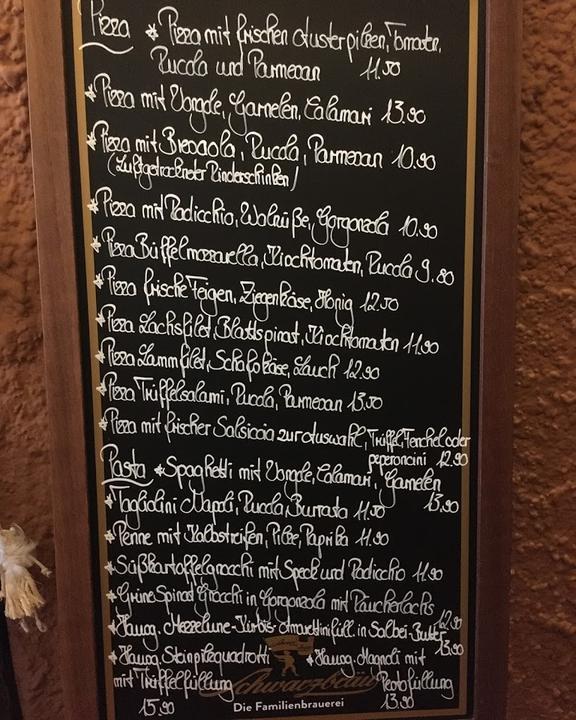 Pizza * Pizza mit frischen Austerpilzen, Tomaten,
Rucola und Parmesan 11.50
* Pizza mit Vongole, Garnelen, Calamari 13.90
* Pizza mit Bresaola, Rucola, Parmesan 10.90
(Luftgetrockneter Rinderschinken)
* Pizza mit Radicchio, Walnüße, Gorgonzola 10.90
* Pizza Büffelmozzarella, Kirschtomaten, Rucola 9.80
* Pizza frische Feigen, Ziegenkäse, Honig 12.50
* Pizza Lachsfilet, Blattspinat, Kirschtomaten 11.90
* Pizza Lammfilet, Schafskäse, Lauch 12.90
* Pizza Trüffelsalami, Rucola, Parmesan 13.50
* Pizza mit frischer Salsiccia zur Auswahl, Trüffel, Fenchel oder
peperoncini 12.90
Pasta * Spaghetti mit Vongole, Calamari, Garnelen
13.90
* Tagliolini Napoli, Rucola, Burrata 11.50
* Penne mit Kalbstreifen, Pilze, Paprika 11.90
* Süßkartoffelgnocchi mit Speck und Radicchio 11.90
* Grüne Spinat Gnocchi in Gorgonzola mit Räucherlachs
12.90
* Hausg. Mezzelune-Kürbis-Amarettinifüll. in Salbei-Butter
13.90
* Hausg. Steinpilzquadrotti * Hausg. Magnoli mit
mit Trüffelfüllung Pestofüllung
15.90 13.90
Schwarzbräu
Die Familienbrauerei